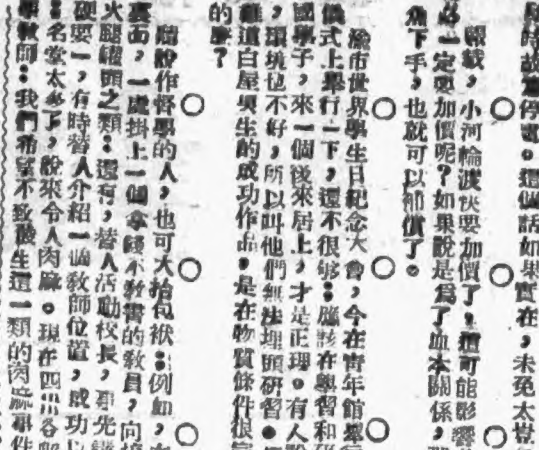 時故意停電。這個話如果實在,未免太豈
報載,小河輪渡快要加價了。這可能影響
必一定要加價呢?如果說是爲了血本關係,
魚下手,也就可以補償了。
渝市世界學生日紀念大會,今在青年館舉行
儀式上舉行一下,還不很够:應該在學習和
國學子,來一個後來居上,才是正理。有人
,環境也不好,所以叫他們無法埋頭研習。
難道白屋與生的成功作品,是在物質條件很
的麽?
據說作督學的人,也可大拾包袱:例如,
裏面,一處掛上一個拿錢不教書的教員,向
火腿罐頭之類:還有,替人活動校長,事先
硬要一,有時替人介紹一個教師位置,成功以
:名堂太多了,說來令人肉麻。現在四川各
學教師:我們希望不致發生這一類的肉麻事件